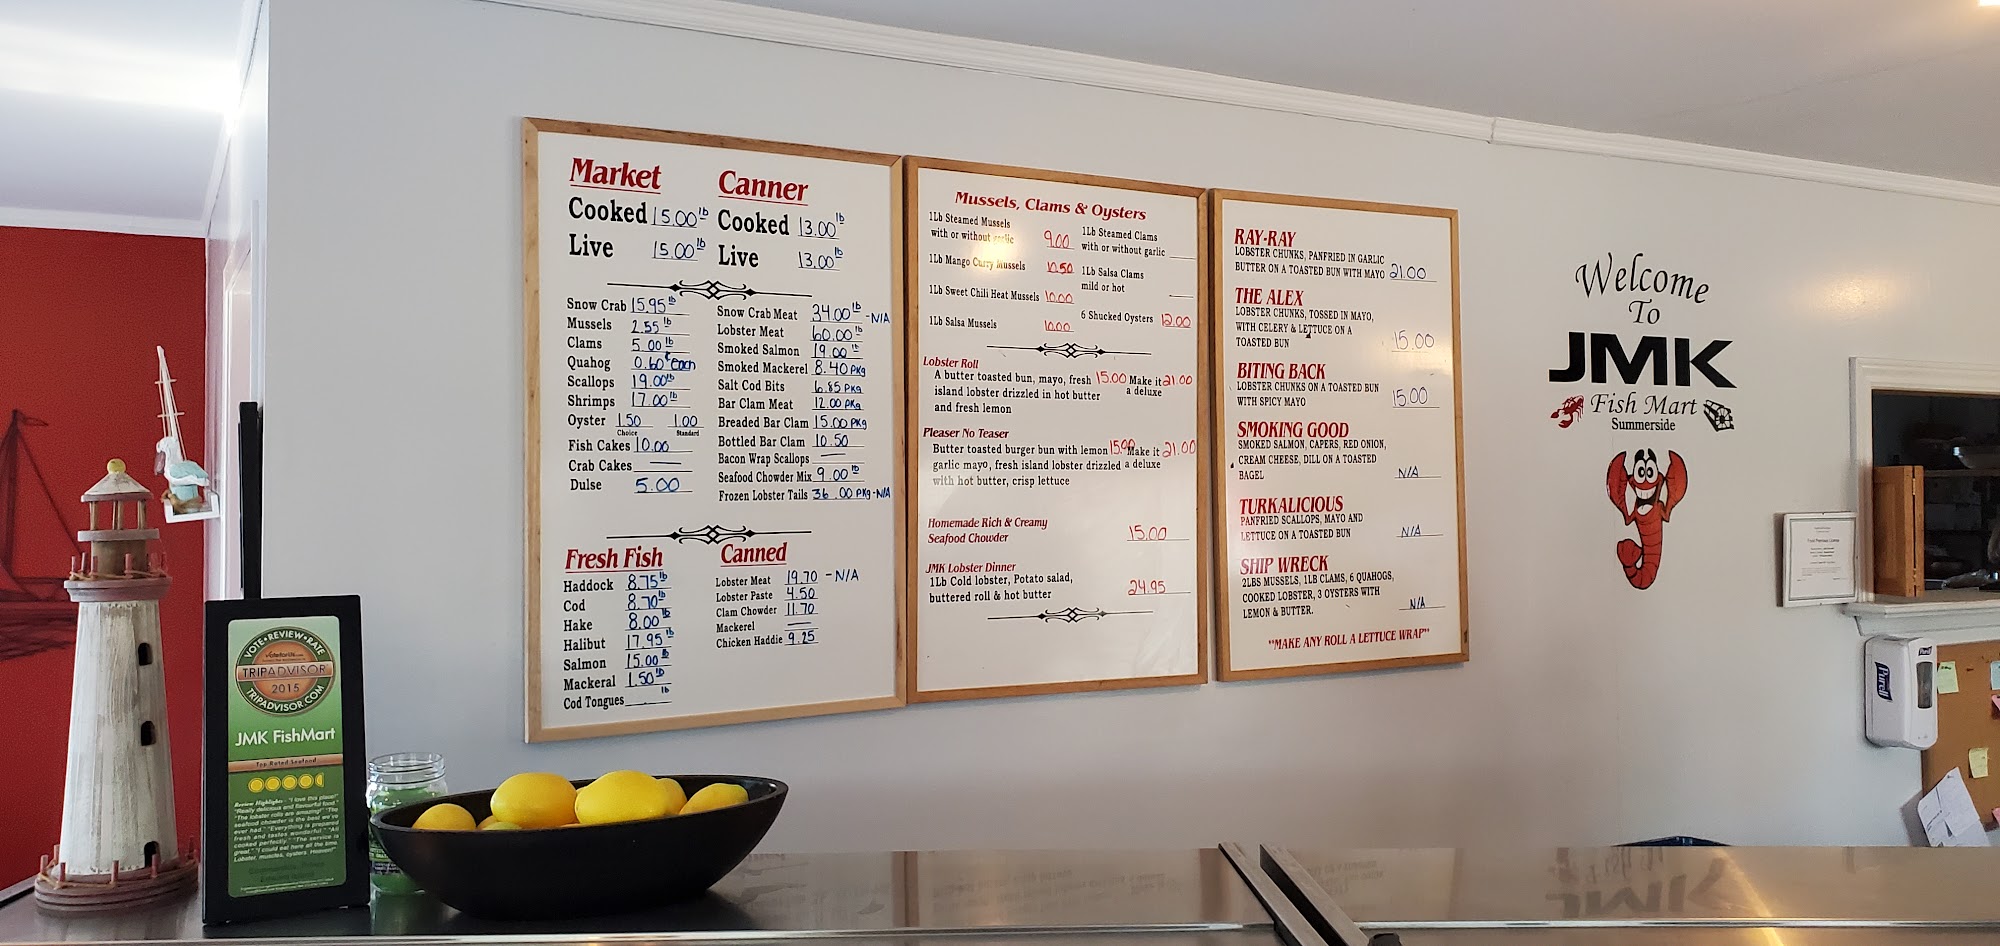 Market
Cooked 15.00 lb
Live 15.00 lb
Canner
Cooked 13.00 lb
Live 13.00 lb
Snow Crab 15.95 lb
Mussels 2.55 lb
Clams 5.00 lb
Quahog 0.60¢ each
Scallops 19.00 lb
Shrimps 17.00 lb
Oyster 1.50 1.00
Choice Standard
Fish Cakes 10.00
Crab Cakes —
Dulse 5.00
Snow Crab Meat 34.00 lb -N/A
Lobster Meat 60.00 lb
Smoked Salmon 19.00 lb
Smoked Mackerel 8.40 PKg
Salt Cod Bits 6.85 PKg
Bar Clam Meat 12.00 PKg
Breaded Bar Clam 15.00 PKg
Bottled Bar Clam 10.50
Bacon Wrap Scallops —
Seafood Chowder Mix 9.00 lb
Frozen Lobster Tails 36.00 PKg -N/A
Fresh Fish
Haddock 8.75 lb
Cod 8.70 lb
Hake 8.00 lb
Halibut 17.95 lb
Salmon 15.00 lb
Mackeral 1.50 lb
Cod Tongues lb
Canned
Lobster Meat 19.70 -N/A
Lobster Paste 4.50
Clam Chowder 11.70
Mackerel —
Chicken Haddie 9.25
Mussels, Clams & Oysters
1Lb Steamed Mussels
with or without garlic 9.00
1Lb Mango Curry Mussels 10.50
1Lb Sweet Chili Heat Mussels 10.00
1Lb Salsa Mussels 10.00
1Lb Steamed Clams
with or without garlic
1Lb Salsa Clams
mild or hot
6 Shucked Oysters 12.00
Lobster Roll
A butter toasted bun, mayo, fresh 15.00 Make it 21.00
island lobster drizzled in hot butter a deluxe
and fresh lemon
Pleaser No Teaser
Butter toasted burger bun with lemon 15.00 Make it 21.00
garlic mayo, fresh island lobster drizzled a deluxe
with hot butter, crisp lettuce
Homemade Rich & Creamy
Seafood Chowder 15.00
JMK Lobster Dinner
1Lb Cold lobster, Potato salad,
buttered roll & hot butter 24.95
RAY-RAY
LOBSTER CHUNKS, PANFRIED IN GARLIC
BUTTER ON A TOASTED BUN WITH MAYO 21.00
THE ALEX
LOBSTER CHUNKS, TOSSED IN MAYO,
WITH CELERY & LETTUCE ON A
TOASTED BUN 15.00
BITING BACK
LOBSTER CHUNKS ON A TOASTED BUN
WITH SPICY MAYO 15.00
SMOKING GOOD
SMOKED SALMON, CAPERS, RED ONION,
CREAM CHEESE, DILL ON A TOASTED
BAGEL N/A
TURKALICIOUS
PANFRIED SCALLOPS, MAYO AND
LETTUCE ON A TOASTED BUN N/A
SHIP WRECK
2LBS MUSSELS, 1LB CLAMS, 6 QUAHOGS,
COOKED LOBSTER, 3 OYSTERS WITH
LEMON & BUTTER. N/A
"MAKE ANY ROLL A LETTUCE WRAP"
Welcome
To
JMK
Fish Mart
Summerside
Purell
VOTE•REVIEW•RATE
TRIPADVISOR
2015
TRIPADVISOR.COM
JMK FishMart
Top Rated Seafood
Review Highlights - "I love this place!"
"Really delicious and flavourful food"
"The lobster rolls are amazing!" "The
seafood chowder is the best we've
ever had." "Everything is prepared
fresh and tastes wonderful." "All
cooked perfectly." "The service is
great." "I could eat here all the time.
Lobster, muscles, oysters. Heaven!"